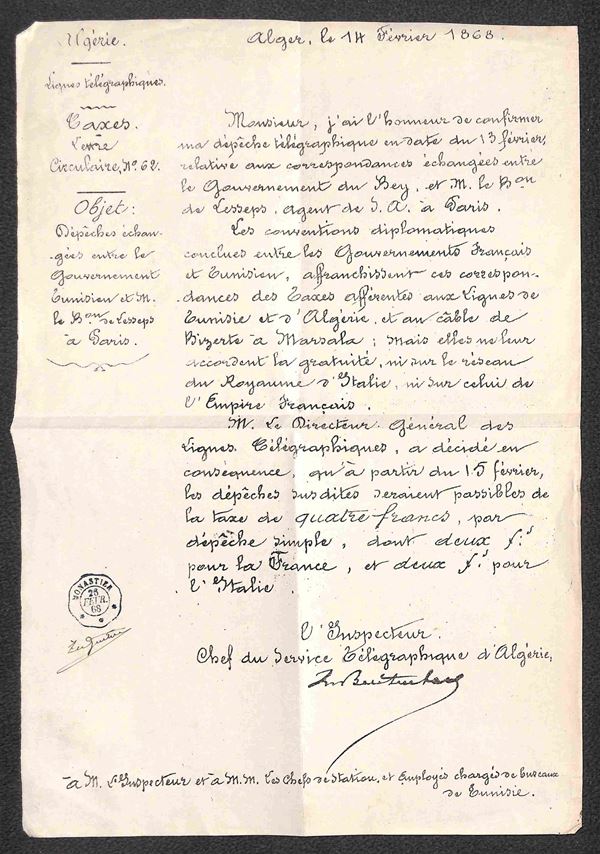 Algérie.
Alger, le 14 Février 1868.
Lignes télégraphiques.
Taxes.
Circulaire, No. 62.
Objet:
Dépêches échan-
-gées entre le
Gouvernement
Tunisien et M.
le Bon de Lesseps
à Paris.
Monsieur, j'ai l'honneur de confirmer
ma dépêche télégraphique en date du 13 février,
relative aux correspondances échangées entre
le Gouvernement du Bey, et M. le Bon
de Lesseps, agent de S. A. à Paris.
Les conventions diplomatiques
conclues entre les Gouvernements Français
et Tunisien, affranchissent ces correspon-
-dances des Taxes afférentes aux Lignes de
Tunisie et d'Algérie, et au câble de
Bizerte à Marsala; Mais elles ne leur
accordent la gratuité, ni sur le réseau
du Royaume d'Italie, ni sur celui de
l'Empire Français.
M. Le Directeur Général des
Lignes Télégraphiques, a décidé en
conséquence, qu'à partir du 15 février,
les dépêches susdites seraient passibles de
la taxe de quatre francs, par
dépêche simple, dont deux f.s
pour la France, et deux f.s pour
l'Italie.
MONASTIER
26
FÉVR.
68
L'Inspecteur.
Chef du Service Télégraphique d'Algérie,
à M. L'Inspecteur et à M.M. Les Chefs de Station, et Employés chargés de bureaux
de Tunisie.